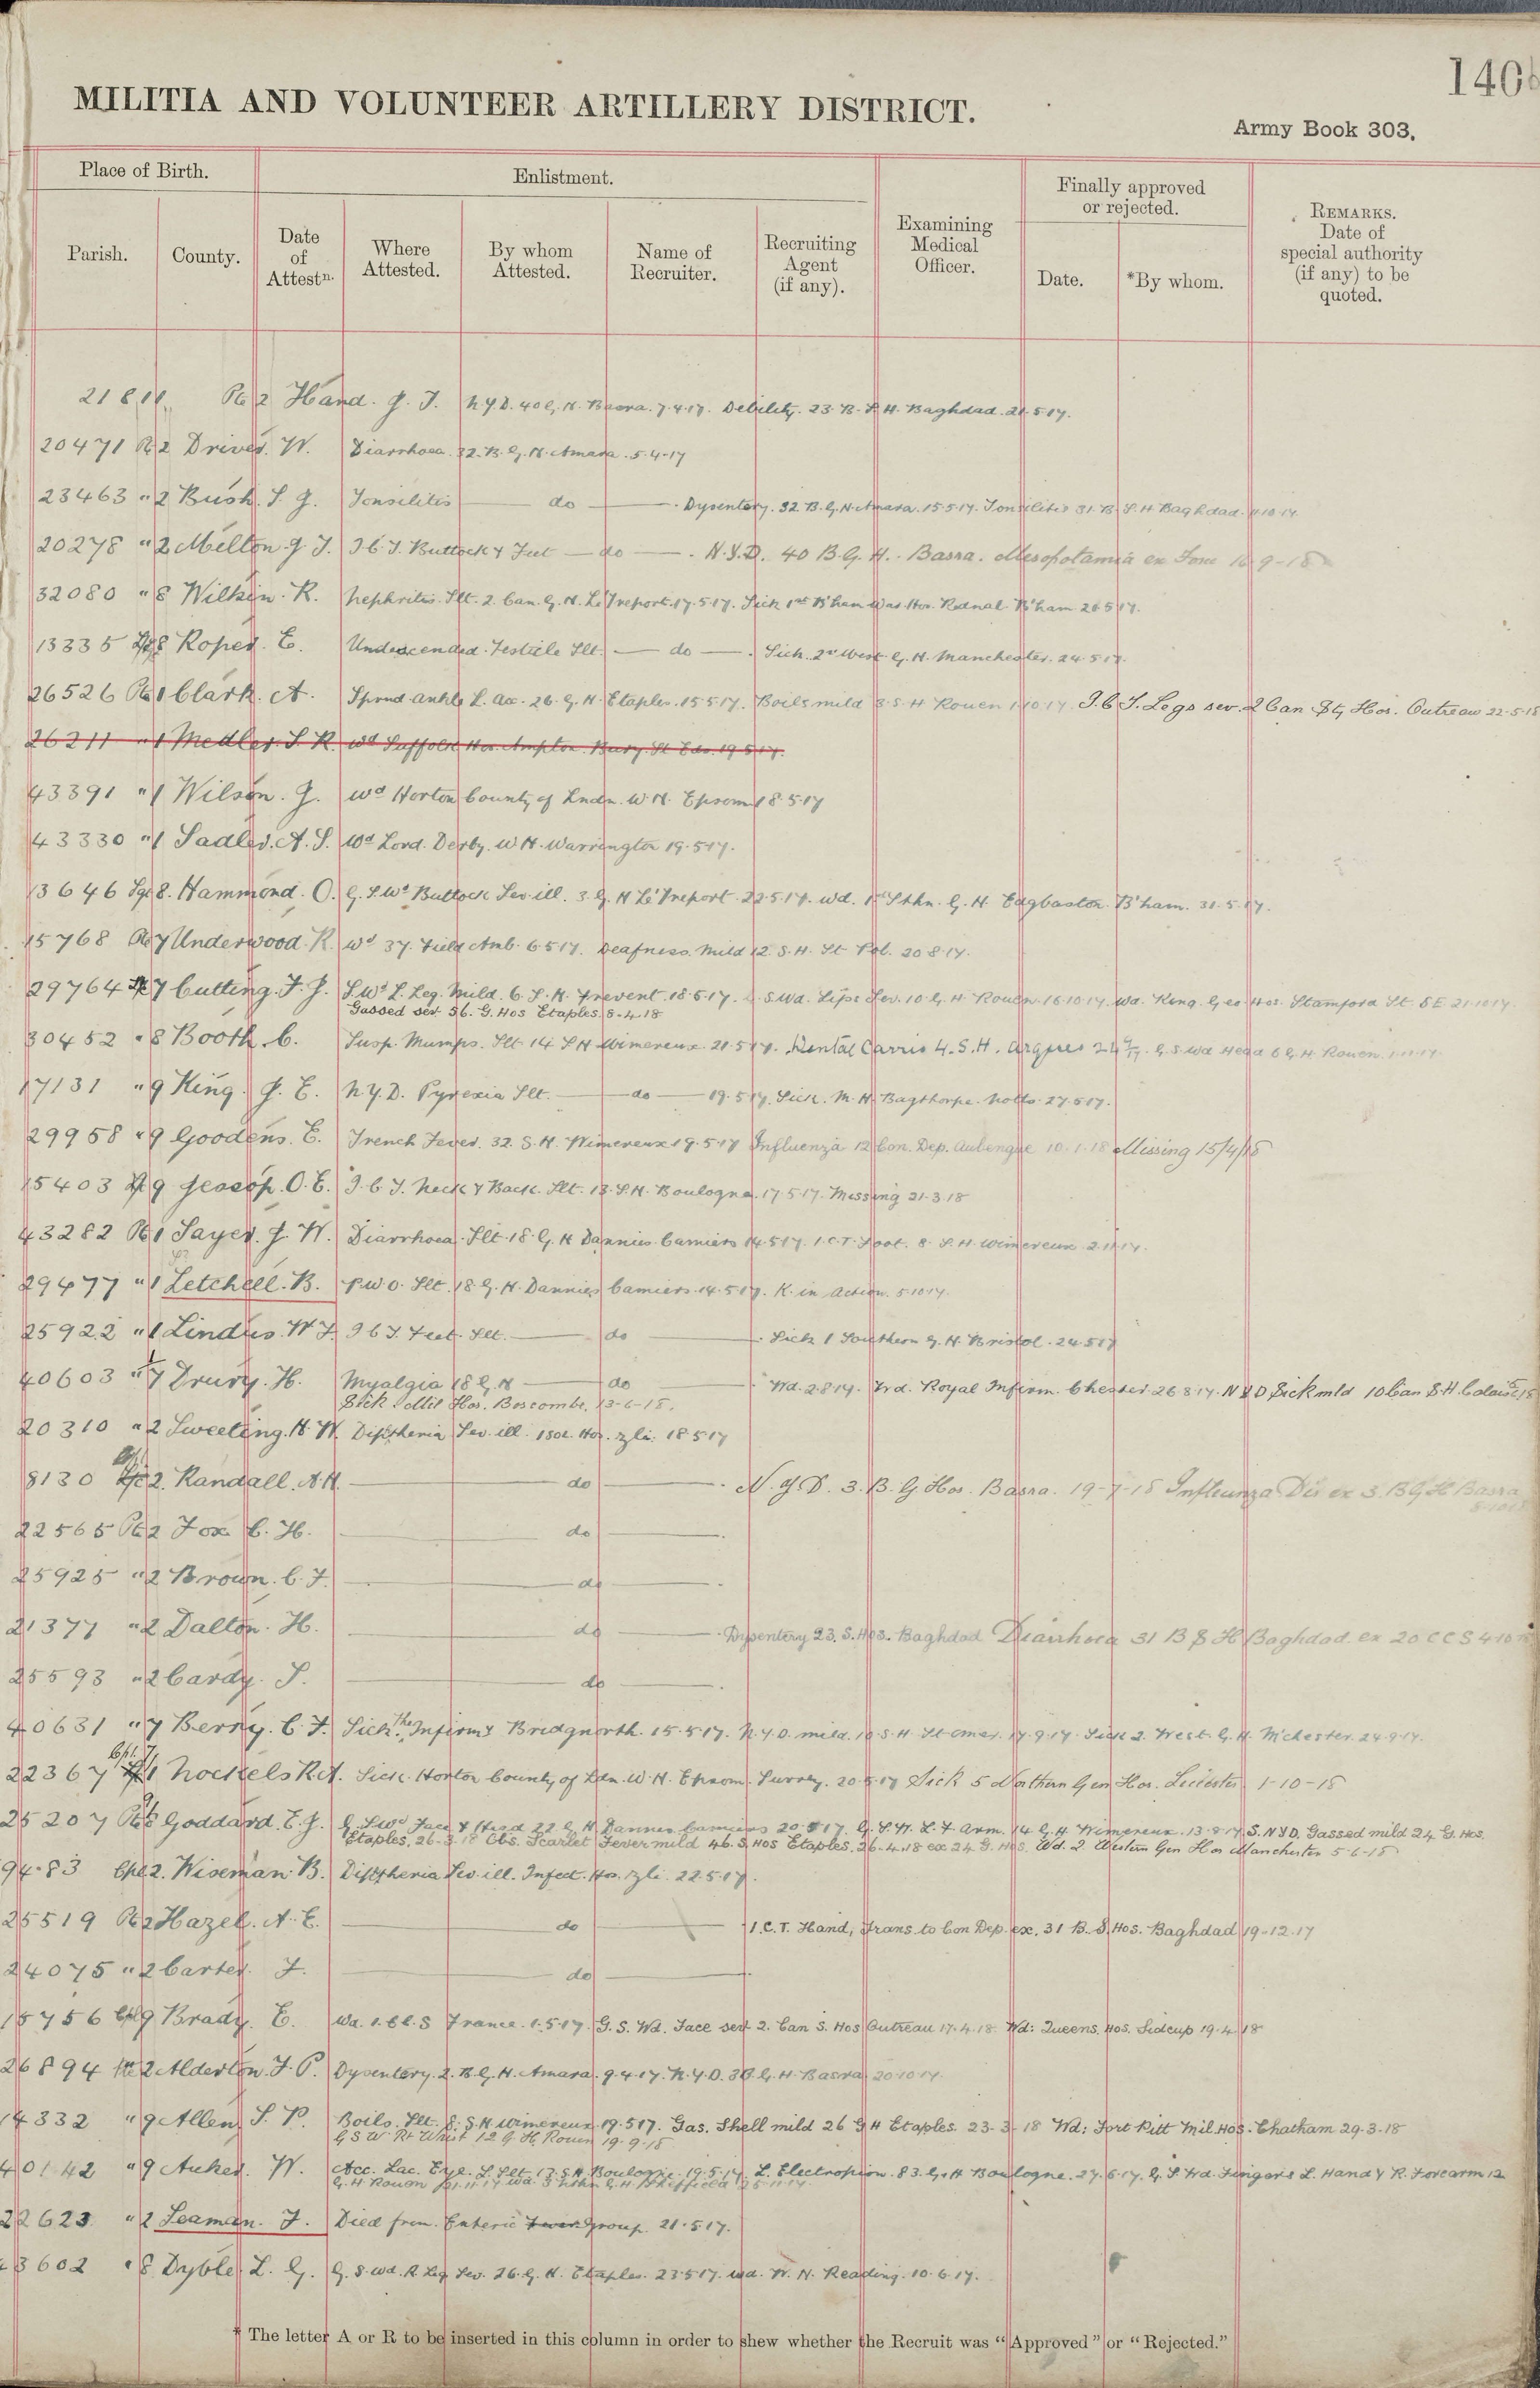 140
MILITIA AND VOLUNTEER ARTILLERY DISTRICT.
Army Book 303.
Place of Birth.
Enlistment.
Finally approved or rejected.
Parish.
County.
Date of Attestn.
Where Attested.
By whom Attested.
Name of Recruiter.
Recruiting Agent (if any).
Examining Medical Officer.
Date.
*By whom.
REMARKS. Date of special authority (if any) to be quoted.
21811 Pte 2 Hand. J. T. N.Y.D. 40 G. H. Basra. 7.4.17. Debility. 23. B. S. H. Baghdad. 21.5.17.
20471 Pte 2 Driver. W. Diarrhoea. 32. B. G. H. Amara. 5.4.17
23463 " 2 Bush. S. G. Tonsilitis do Dysentery. 32 B. G. H. Amara. 15.5.17. Tonsilitis 31. B. S. H. Baghdad. 4.10.17.
20278 " 2 Melton. J. I.C.T. Buttock & Feet do N.Y.D. 40 B. G. H. Basra. Mesopotamia ex
32080 " 8 Wilkin. R. Nephritis. Slt. 2. Can. G. H. Le Treport. 17.5.17. Sick 1st B'ham War Hos. Rednal. B'ham 21.5.17.
13335 8 Roper. E. Undescended. Testicle Slt. do Sick. 2nd West G. H. Manchester. 24.5.17.
26526 Pte 1 Clark. A. Sprnd Ankle L. Acc. 26. G. H. Etaples. 15.5.17. Boils mild 8. S. H Rouen 1.10.17. I.C.T. Legs sev. 2 Can Sty Hos. Outreau 22-5-18
26211 " 1 Medler. S. R. Wd Suffolk Hos. Ampton. Bury. St Eds. 19.5.17.
43391 " 1 Wilson. G. Wd Horton County of Lndn. W. H. Epsom 18.5.17
43330 " 1 Sadler. A. S. Wd Lord. Derby. W. H. Warrington 19.5.17.
13646 Sgt 8. Hammond. O. G. S. Wd Buttock Sev. ill. 3. G. H Le Treport. 22.5.17. Wd. 1st Sthn. G. H. Edgbaston. B'ham. 31.5.17.
15768 Pte 7 Underwood. R. Wd 37. Field Amb. 6.5.17. Deafness. Mild 12. S. H. St Pol. 20.8.17.
29764 7 Cutting. F. J. S. Wd L. Leg. Mild. 6. S. H. Frevent. 18.5.17. G. S. Wd. Lips Sev. 10 G. H Rouen 16.10.17. Wd. King. Geo Hos. Stamford St. SE 21.10.17.
Gassed sev. 56. G. Hos Etaples. 8-4-18
30452 " 8 Booth. C. Susp. Mumps. Slt. 14. S H Wimereux. 21.5.17. Dental Carris 4. S. H. Arques G. S. Wd Head 6 G. H Rouen. 1.11.17.
17131 " 9 King. J. E. N. Y. D. Pyrexia Slt. do 19.5.17. Sick. M. H. Bagthorpe. Notts. 27.5.17.
29958 " 9 Goodens. E. Trench Fever. 32. S. H. Wimereux 19.5.17 Influenza 12 Con. Dep. Aubengue 10.1.18 Missing 15/4/18
15403 9 Jessop. O. E. I.C.T. Neck & Back. Slt. 13. S. H. Boulogne. 17.5.17. Missing 21.3.18
43282 Pte 1 Sayer. J. W. Diarrhoea. Slt. 18. G. H Dannies Camiers 14.5.17. I.C.T. Foot. 8. S. H. Wimereux 2.11.17.
29477 " 1 Letchell. B. P.U.O. Slt. 18. G. H. Dannies Camiers. 14.5.17. K. in Action. 5.10.17.
25922 " 1 Lindus. W. F. I.C.T. Feet. Slt. do Sick 1 Southern G. H. Bristol. 24.5.17
40603 " 7 Drury. H. Myalgia 18 G. H do Wd. 2.8.17. Wd. Royal Infirm. Chester. 26.8.17. N Y D Sick mld 10 Can S. H. Calais
Sick Mil Hos. Boscombe. 13-6-18.
20310 " 2 Sweeting. H. W. Diptheria Sev. ill. Isol. Hos. 18.5.17
8130 2. Randall. A. H. do N. Y. D. 3. B. G Hos. Basra. 19-7-18 Influenza Dis ex 3. B G H Basra
22565 Pte 2 Fox C. H. do
25925 " 2 Brown. C. F. do
21377 " 2 Dalton. H. do Dysentery 23. S. Hos. Baghdad Diarrhoea 31 B S H Baghdad. ex 20 C C S
25593 " 2 Cardy. S. do
40631 " 7 Berry. C. F. Sick. The Infirmy Bridgnorth. 15.5.17. N. Y. D. mild. 10. S. H St Omer. 17.9.17. Sick 2. West. G. H. M'chester. 24.9.17.
22367 Cpl. 1 Nockels R. A. Sick. Horton County of Ldn. W. H. Epsom. Surrey. 20.5.17 Sick 5 Northern Gen Hos. Leicester 1-10-18
25207 Pte 8 Goddard. E. J. G. S. Wd Face & Head 22 G. H Dannes Camiers 20.5.17. G. S. W. L. F. Arm. 14 G. H. Wimereux. 13.8.17. S. N Y D. Gassed mild 24 G. Hos.
Etaples. 26.3.18 Obs. Scarlet Fever mild 46. S. Hos Etaples. 26-4-18 ex 24 G. Hos. Wd. 2 Western Gen Hos Manchester 5-6-18
9483 Cpl 2. Wiseman. B. Diptheria Sev. ill. Infect. Hos. 22.5.17.
25519 Pte 2 Hazel. A. E. do I. C. T. Hand, Trans. to Con Dep. ex. 31 B. S. Hos. Baghdad 19-12-17
24075 " 2 Carter. F. do
15756 9 Brady. E. Wd. 1. C. C. S France. 1.5.17. G. S. Wd. Face sev 2. Can S. Hos Outreau 17.4.18. Wd: Queens. Hos. Sidcup 19.4.18
26894 Pte 2 Alderton. F. P. Dysentery. 2. B. G. H. Amara. 9.4.17. N. Y. D. 3 B. G. H. Basra 20.10.17.
14332 " 9 Allen. S. P. Boils. Slt. 8. S. H Wimereux. 19.5.17. Gas. Shell mild 26 G H Etaples. 23-3-18 Wd: Fort Pitt Mil. Hos. Chatham 29-3-18
G S W Rt Wrist 12 G H Rouen 19-9-18
40142 " 9 Auker. W. Acc. Lac. Eye. L. Slt. 13. S. H. Boulogne. 19.5.17. L. Electropion. 83. G. H Boulogne. 27.6.17. G. S. Wd. Fingers L. Hand & R. Forearm 12
G. H Rouen Wd. 3 Nthn G. H. Sheffield 25.11.17.
22623 " 2 Seaman. F. Died from. Enteric Fever Group. 21.5.17.
43602 " 8 Dyble. L. G. G. S. Wd. R Leg Sev. 26. G. H. Etaples. 23.5.17. Wd. W. H. Reading. 10.6.17.
* The letter A or R to be inserted in this column in order to shew whether the Recruit was "Approved" or "Rejected."